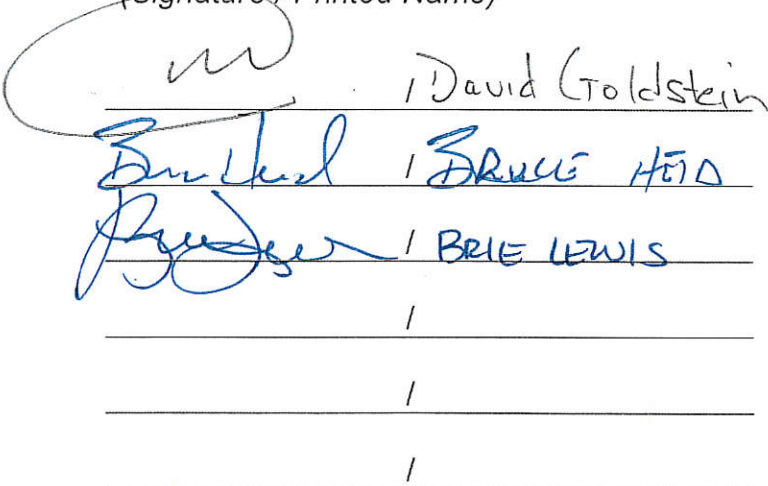 (Signature / Printed Name)
/ David Goldstein
/ BRUCE HEID
/ BRIE LEWIS
/
/
/